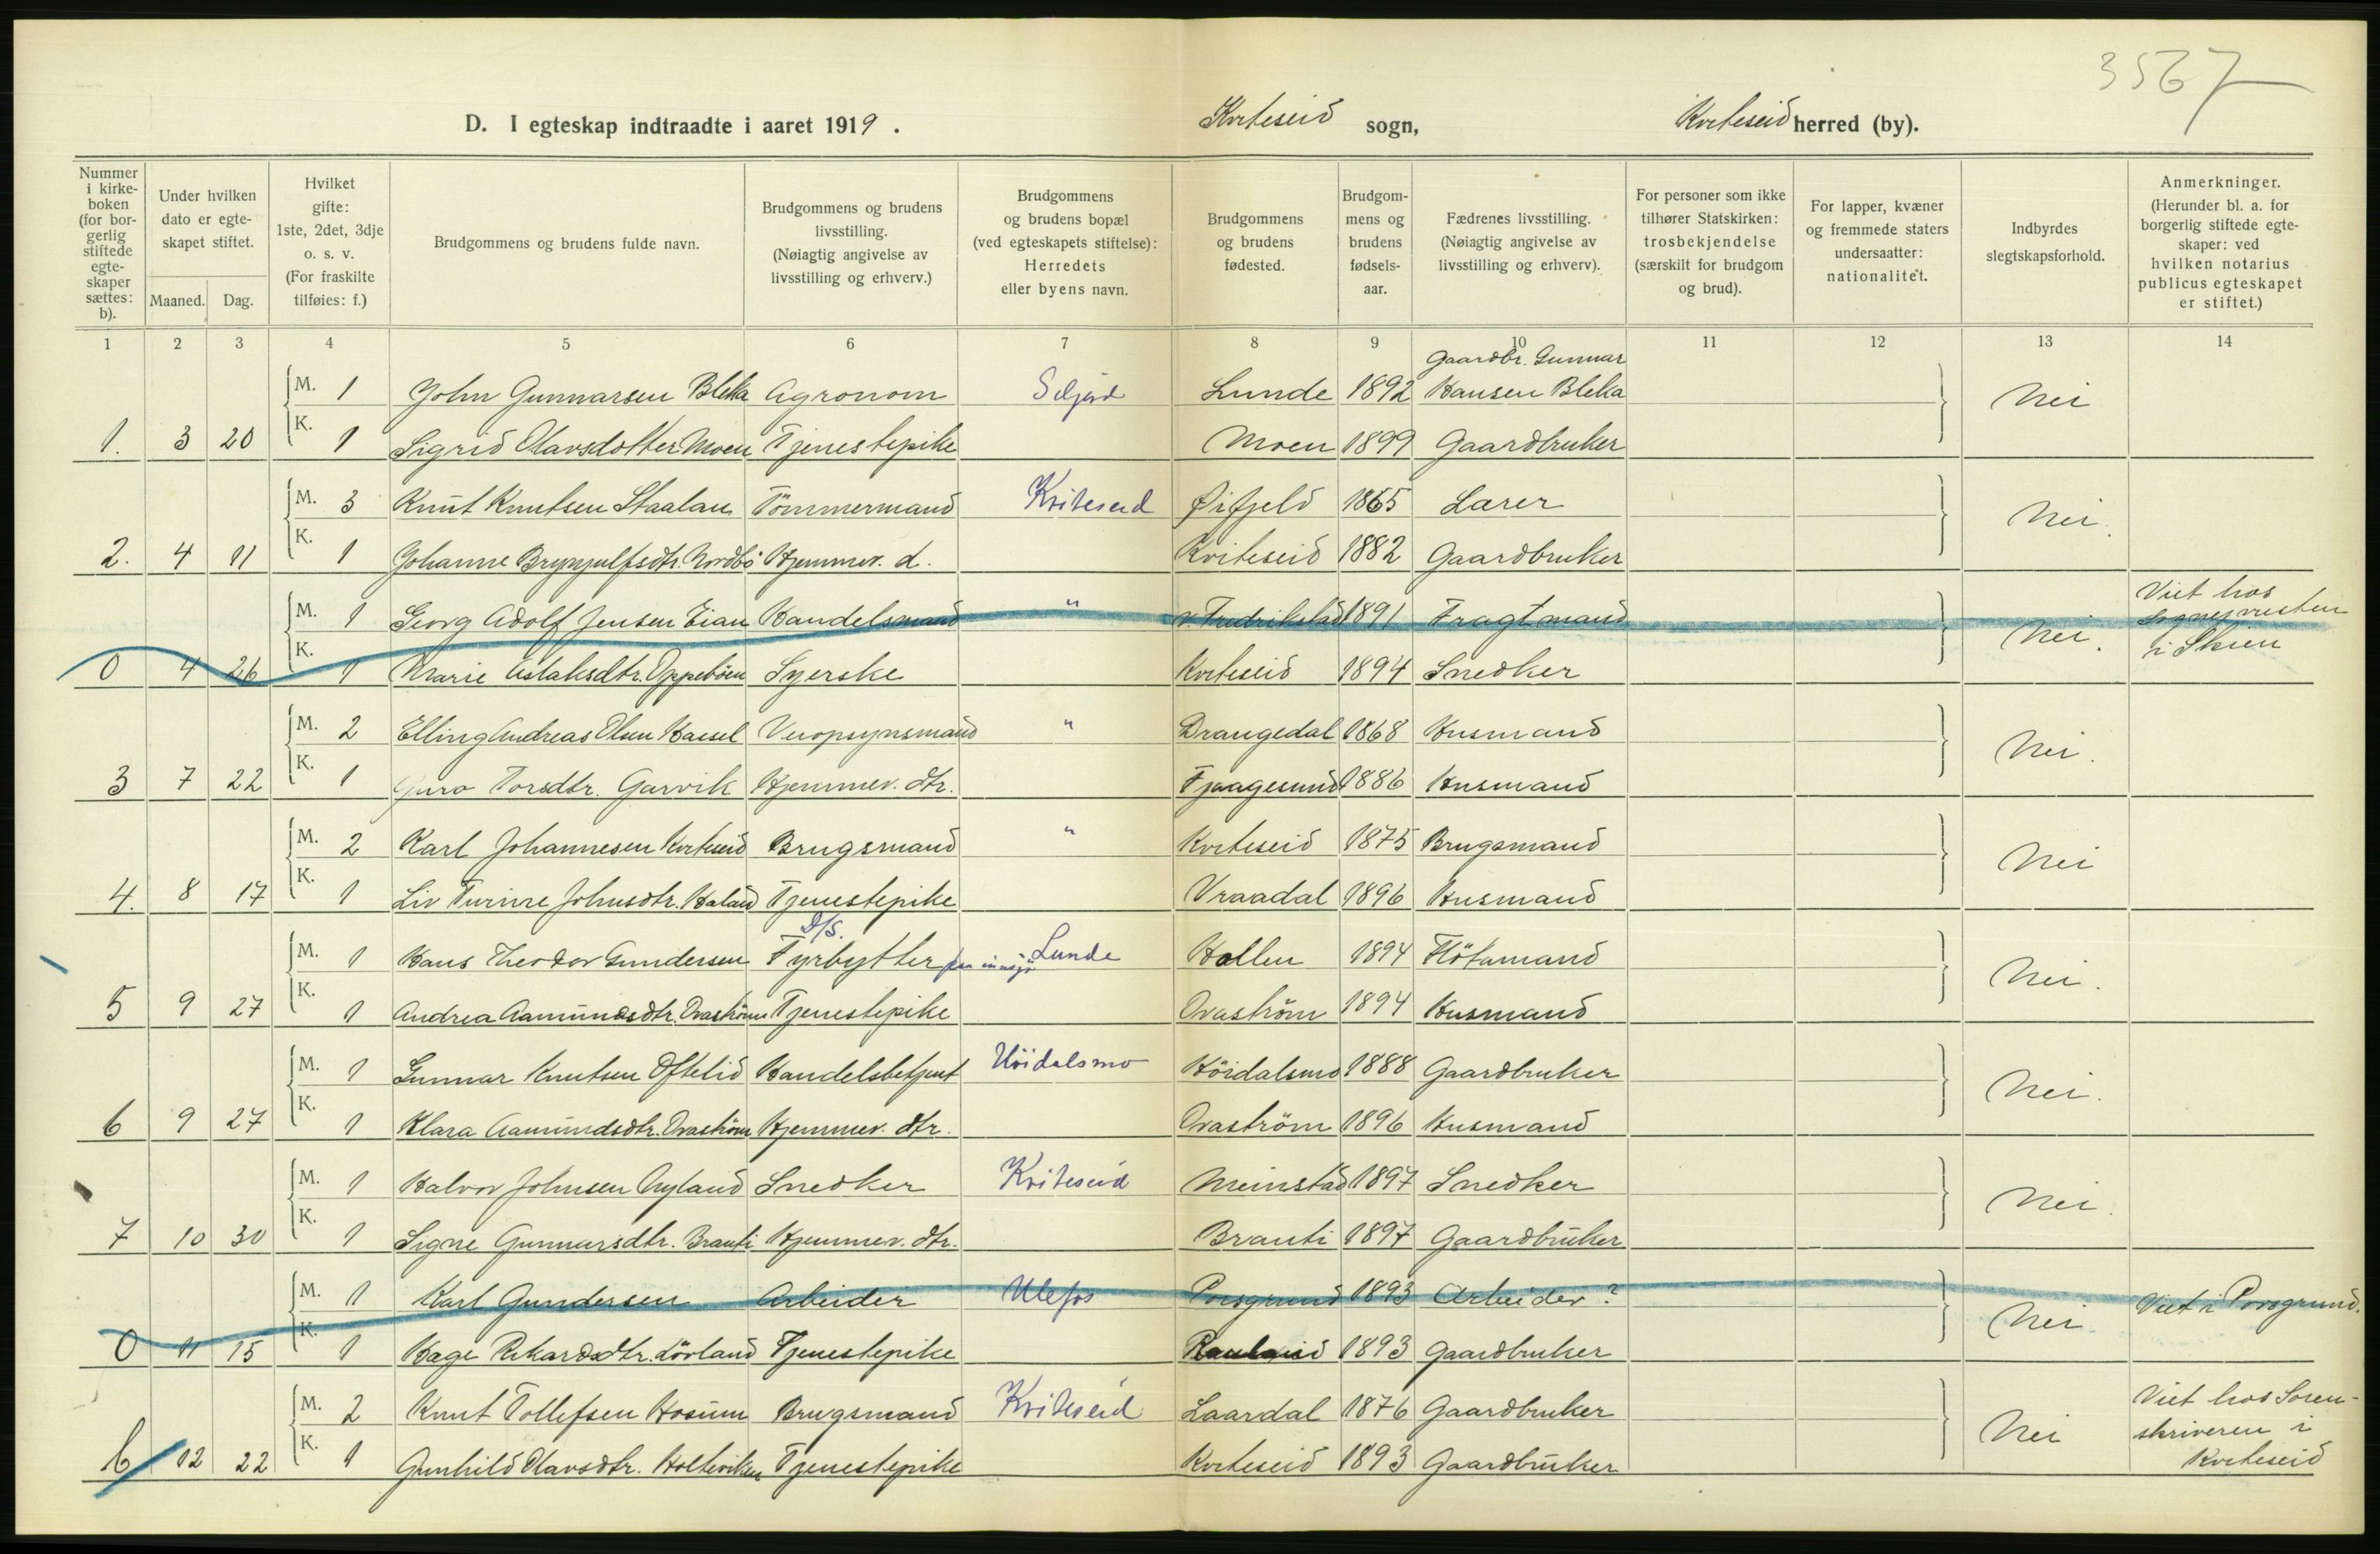 3567
D. I egteskap indtraadte i aaret 1919. Kviteseid sogn, Kviteseid herred (by).
Nummer i kirkeboken (for borgerlig stiftede egteskaper sættes: b).
Under hvilken dato er egteskapet stiftet.
Maaned. Dag.
Hvilket gifte: 1ste, 2det, 3dje o. s. v. (For fraskilte tilføies: f.)
Brudgommens og brudens fulde navn.
Brudgommens og brudens livsstilling. (Nøiagtig angivelse av livsstilling og erhverv.)
Brudgommens og brudens bopæl (ved egteskapets stiftelse): Herredets eller byens navn.
Brudgommens og brudens fødested.
Brudgommens og brudens fødselsaar.
Fædrenes livsstilling. (Nøiagtig angivelse av livsstilling og erhverv).
For personer som ikke tilhører Statskirken: trosbekjendelse (særskilt for brudgom og brud).
For lapper, kvæner og fremmede staters undersaatter: nationalitet.
Indbyrdes slegtskapsforhold.
Anmerkninger. (Herunder bl. a. for borgerlig stiftede egteskaper: ved hvilken notarius publicus egteskapet er stiftet.)
1 2 3 4 5 6 7 8 9 10 11 12 13 14
Gaardbr. Gunnar
M. 1 John Gunnarsen Bleka Agronom Seljord Lunde 1892 Hansen Bleka Nei
1. 3 20 K. 1 Sigrid Olavsdotter Moen Tjenestepike Moen 1899 Gaardbruker
M. 3 Knut Knutsen Staalan Tömmermand Kviteseid Øifjeld 1865 Lærer Nei.
2. 4 11 K. 1 Johanne Brynjulfsdtr. Nordbö Hjemmev. d. Kviteseid 1882 Gaardbruker
M. 1 Georg Adolf Jensen Eian Handelsmand " v. Fredrikstad 1891 Fragtmand Nei. Viet hos Sognepresten i Skien
0 4 26 K. 1 Marie Aslaksdtr. Oppeböen Syerske Kviteseid 1894 Snedker
M. 2 Elling Andreas Olsen Hassel Veiopsynsmand " Drangedal 1868 Husmand Nei.
3 7 22 K. 1 Guro Torsdtr. Garvik Hjemmev. dtr. Fjaagesund 1886 Husmand
M. 2 Karl Johannesen Kviteseid Brugsmand " Kviteseid 1875 Brugsmand Nei
4. 8 17 K. 1 Liv Turine Johnsdtr. Haland Tjenestepike Vraadal 1896 Husmand
D/S.
M. 1 Hans Theodor Gundersen Fyrbytter paa innsjø Lunde Hollen 1894 Flötamand Nei.
5 9 27 K. 1 Andrea Aamundsdtr. Ovaström Tjenestepike Ovaström 1894 Husmand
M. 1 Gunnar Knutsen Oftelid Handelsbetjent Höidalsmo Höidalsmo 1888 Gaardbruker Nei.
6 9 27 K. 1 Klara Aamundsdtr. Ovaström Hjemmev. dtr. Ovaström 1896 Husmand
M. 1 Halvor Johnsen Nyland Snedker Kviteseid Meinstad 1897 Snedker Nei.
7 10 30 K. 1 Signe Gunnarsdtr. Brauti Hjemmev. dtr. Brauti 1897 Gaardbruker
M. 1 Karl Gundersen Arbeider Ulefos Porsgrund 1893 Arbeider? Nei. Viet i Porsgrund.
0 11 15 K. 1 Rikardsdtr. Lövland Tjenestepike 1893 Gaardbruker
M. 2 Knut Tollefsen Hosum Brugsmand Kviteseid Laardal 1876 Gaardbruker Nei Viet hos Sorenskriveren i Kviteseid
b 12 22 K. 1 Gunhild Olavsdtr. Holteviken Tjenestepike Kviteseid 1893 Gaardbruker